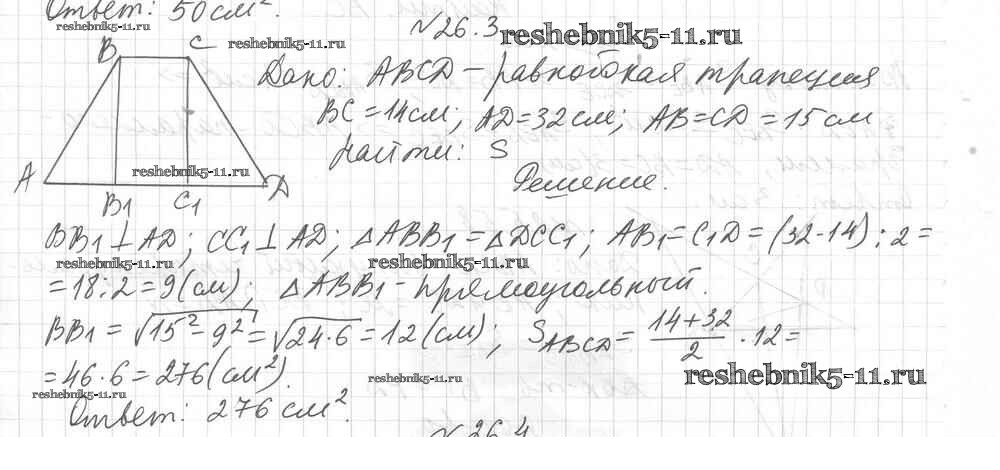 Ответ: 50 см².
reshebnik5-11.ru
№ 26.3 reshebnik5-11.ru
B C reshebnik5-11.ru
Дано: ABCD – равнобокая трапеция
BC = 14 см; AD = 32 см; AB = CD = 15 см
Найти: S
reshebnik5-11.ru
Решение.
A D
B1 C1
BB1 ⊥ AD; CC1 ⊥ AD; △ABB1 = △DCC1; AB1 = C1D = (32-14) : 2 =
reshebnik5-11.ru reshebnik5-11.ru
= 18 : 2 = 9 (см); △ABB1 – прямоугольный.
BB1 = √15² – 9² = √24·6 = 12 (см); SABCD = 14+32/2 · 12 =
= 46 · 6 = 276 (см²).
reshebnik5-11.ru reshebnik5-11.ru
reshebnik5-11.ru
Ответ: 276 см².
№ 26.4